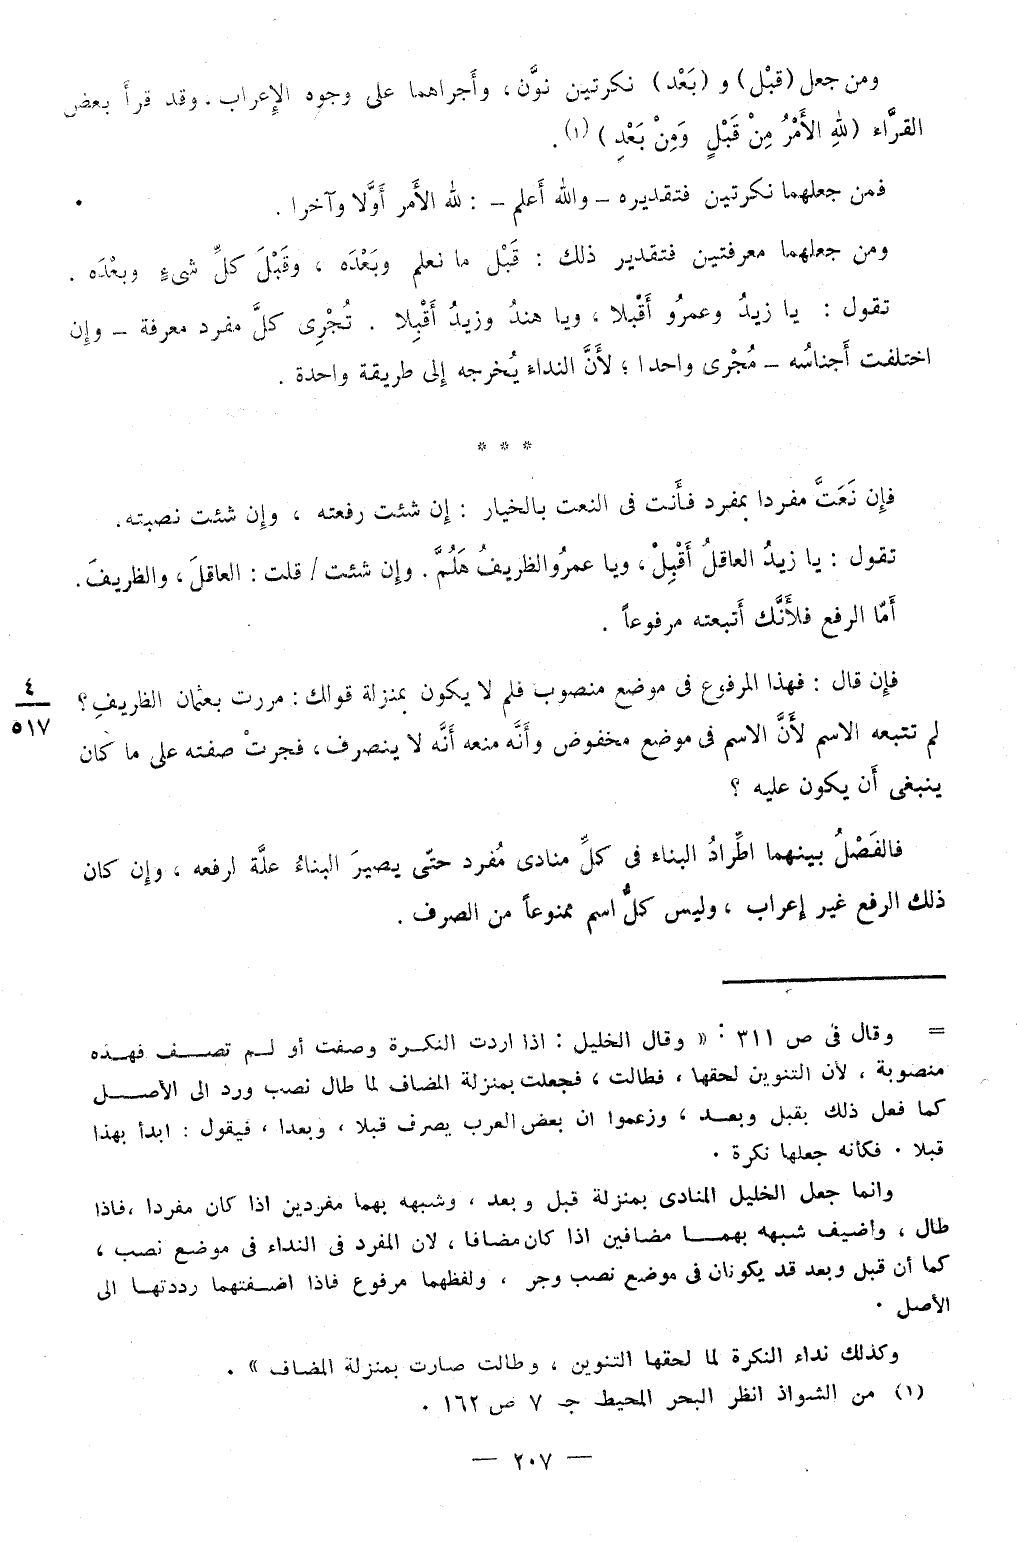 ومن جعل (قبْل) و (بَعْد) نكرتين نوَّن، وأَجراهما على وجوه الإِعراب. وقد قرأَ بعض
القرَّاء (للهِ الأَمْرُ مِنْ قَبْلٍ وَمِنْ بَعْدٍ) (١).
فمن جعلهما نكرتين فتقديره – والله أَعلم – : لله الأَمر أَوَّلا وآخرا .
ومن جعلهما معرفتين فتقدير ذلك : قَبْل ما نعلم وبَعْدَه ، وقَبْلَ كلِّ شيءٍ وبعْدَه .
تقول : يا زيدُ وعمرُو أَقْبلا ، ويا هندُ وزيدُ أَقْبِلا . تُجْرِى كلَّ مفرد معرفة – وإِن
اختلفت أَجناسُه – مُجْرى واحدا ؛ لأَنَّ النداء يُخرجه إِلى طريقة واحدة .
* * *
فإِن نَعَتَّ مفردا بمفرد فأَنت فى النعت بالخيار : إِن شئت رفعته ، وإِن شئت نصبته.
تقول : يا زيدُ العاقلُ أَقْبِلْ، ويا عمرُو الظريفُ هَلُمَّ. وإِن شئت / قلت : العاقلَ ، والظريفَ.
أَمّا الرفع فلأَنَّك أَتبعته مرفوعاً .
فإِن قال : فهذا المرفوع فى موضع منصوب فلم لا يكون بمنزلة قولك : مررت بعثمان الظريفِ ؟
٤
٥١٧
لم تتبعه الاسم لأَنَّ الاسم فى موضع مخفوض وأَنَّه منعه أَنَّه لا ينصرف ، فجرتْ صفته على ما كان
ينبغى أَن يكون عليه ؟
فالفَصْلُ بينهما اطِّرادُ البناء فى كلِّ منادى مُفرد حتّى يصيرَ البناءُ علَّة لرفعه ، وإِن كان
ذلك الرفع غير إِعراب ، وليس كلُّ اسم ممنوعاً من الصرف .
= وقال فى ص ٣١١ : « وقال الخليل : اذا اردت النكرة وصفت أو لم تصف فهذه
منصوبة ، لأن التنوين لحقها ، فطالت ، فجعلت بمنزلة المضاف لما طال نصب ورد الى الأصل
كما فعل ذلك بقبل وبعد ، وزعموا ان بعض العرب يصرف قبلا ، وبعدا ، فيقول : ابدأ بهذا
قبلا . فكأنه جعلها نكرة .
وانما جعل الخليل المنادى بمنزلة قبل وبعد ، وشبهه بهما مفردين اذا كان مفردا ، فاذا
طال ، واضيف شبهه بهما مضافين اذا كان مضافا ، لان المفرد فى النداء فى موضع نصب ،
كما أن قبل وبعد قد يكونان فى موضع نصب وجر ، ولفظهما مرفوع فاذا اضفتهما رددتهما الى
الأصل .
وكذلك نداء النكرة لما لحقها التنوين ، وطالت صارت بمنزلة المضاف » .
(١) من الشواذ انظر البحر المحيط جـ ٧ ص ١٦٢ .
— ٢٠٧ —